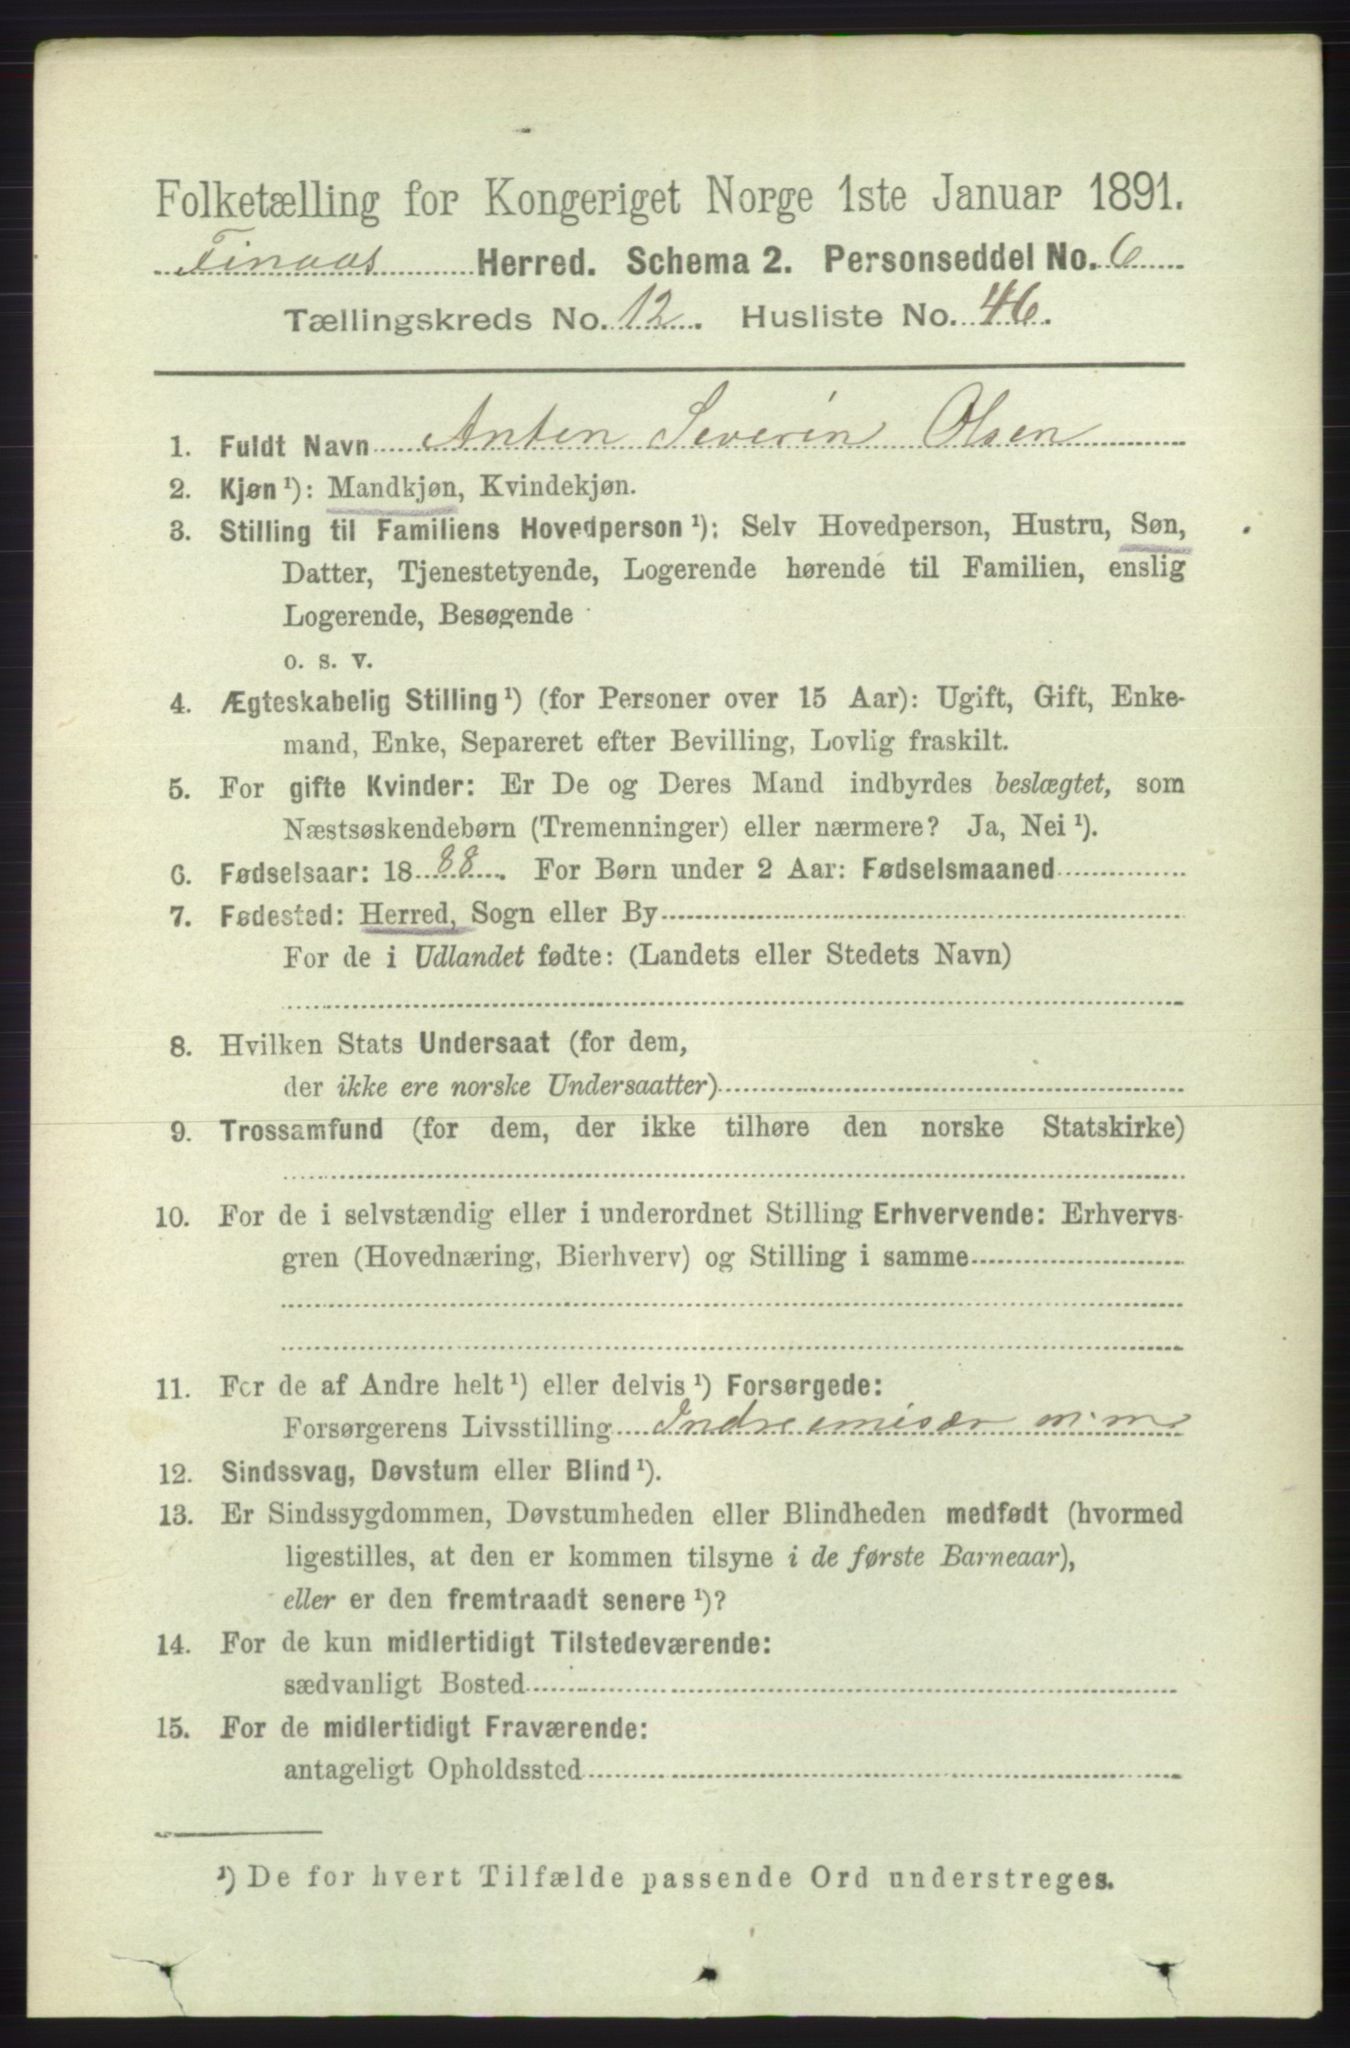 Folketælling for Kongeriget Norge 1ste Januar 1891.
Finaas Herred. Schema 2. Personseddel No. 6
Tællingskreds No. 12. Husliste No. 46.
1. Fuldt Navn Anten Severin Olsen
2. Kjøn ¹): Mandkjøn, Kvindekjøn.
3. Stilling til Familiens Hovedperson ¹): Selv Hovedperson, Hustru, Søn,
Datter, Tjenestetyende, Logerende hørende til Familien, enslig
Logerende, Besøgende
o. s. v.
4. Ægteskabelig Stilling ¹) (for Personer over 15 Aar): Ugift, Gift, Enke-
mand, Enke, Separeret efter Bevilling, Lovlig fraskilt.
5. For gifte Kvinder: Er De og Deres Mand indbyrdes beslægtet, som
Næstsøskendebørn (Tremenninger) eller nærmere? Ja, Nei ¹).
6. Fødselsaar: 1888. For Børn under 2 Aar: Fødselsmaaned
7. Fødested: Herred, Sogn eller By
For de i Udlandet fødte: (Landets eller Stedets Navn)
8. Hvilken Stats Undersaat (for dem,
der ikke ere norske Undersaatter)
9. Trossamfund (for dem, der ikke tilhøre den norske Statskirke)
10. For de i selvstændig eller i underordnet Stilling Erhvervende: Erhvervs-
gren (Hovednæring, Bierhverv) og Stilling i samme
11. For de af Andre helt ¹) eller delvis ¹) Forsørgede:
Forsørgerens Livsstilling Indreemisær m.m.
12. Sindssvag, Døvstum eller Blind ¹).
13. Er Sindssygdommen, Døvstumheden eller Blindheden medfødt (hvormed
ligestilles, at den er kommen tilsyne i de første Barneaar),
eller er den fremtraadt senere ¹)?
14. For de kun midlertidigt Tilstedeværende:
sædvanligt Bosted
15. For de midlertidigt Fraværende:
antageligt Opholdssted
¹) De for hvert Tilfælde passende Ord understreges.